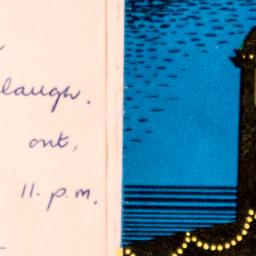 laugh.
ont,
11. p.m.